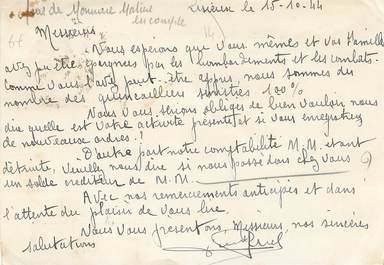 Lisieux le 15-10-44
de Monnaie Matière
en compte
Messieurs
Nous espérons que vous mêmes et vos familles
avez pu être épargnées par les bombardements et les combats.
Comme vous l'avez peut-être appris, nous sommes du
nombre des quincailliers sinistrés 100%
Nous vous serions obligés de bien vouloir nous
dire quelle est votre activité présente et si vous enregistrez
de nouveaux ordres.
D'autre part notre comptabilité M.M. étant
détruite, veuillez nous dire si nous possédons chez vous
un solde créditeur de M.M.
Avec nos remerciements anticipés et dans
l'attente du plaisir de vous lire.
Nous vous présentons, Messieurs, nos sincères
salutations